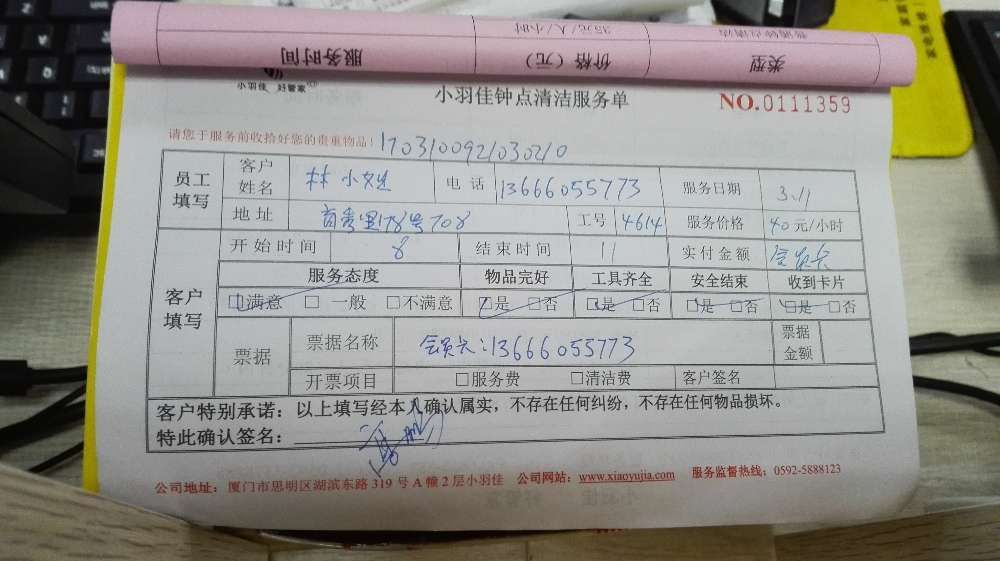 服务时间 价格（元） 类型
35元/人/小时 普通钟点清洁
小羽佳 好管家
小羽佳钟点清洁服务单 NO.0111359
请您于服务前收拾好您的贵重物品！ 170310092103020
员工填写 客户姓名 林小姐 电话 13666055773 服务日期 3.11
地址 莲秀里178号708 工号 4614 服务价格 40元/小时
客户填写 开始时间 8 结束时间 11 实付金额 会员卡
服务态度 物品完好 工具齐全 安全结束 收到卡片
☑满意 □一般 □不满意 ☑是 □否 ☑是 □否 ☑是 □否 ☑是 □否
票据 票据名称 会员卡：13666055773 票据金额
开票项目 □服务费 □清洁费 客户签名
客户特别承诺：以上填写经本人确认属实，不存在任何纠纷，不存在任何物品损坏。
特此确认签名：
公司地址：厦门市思明区湖滨东路319号A幢2层小羽佳 公司网站：www.xiaoyujia.com 服务监督热线：0592-5888123